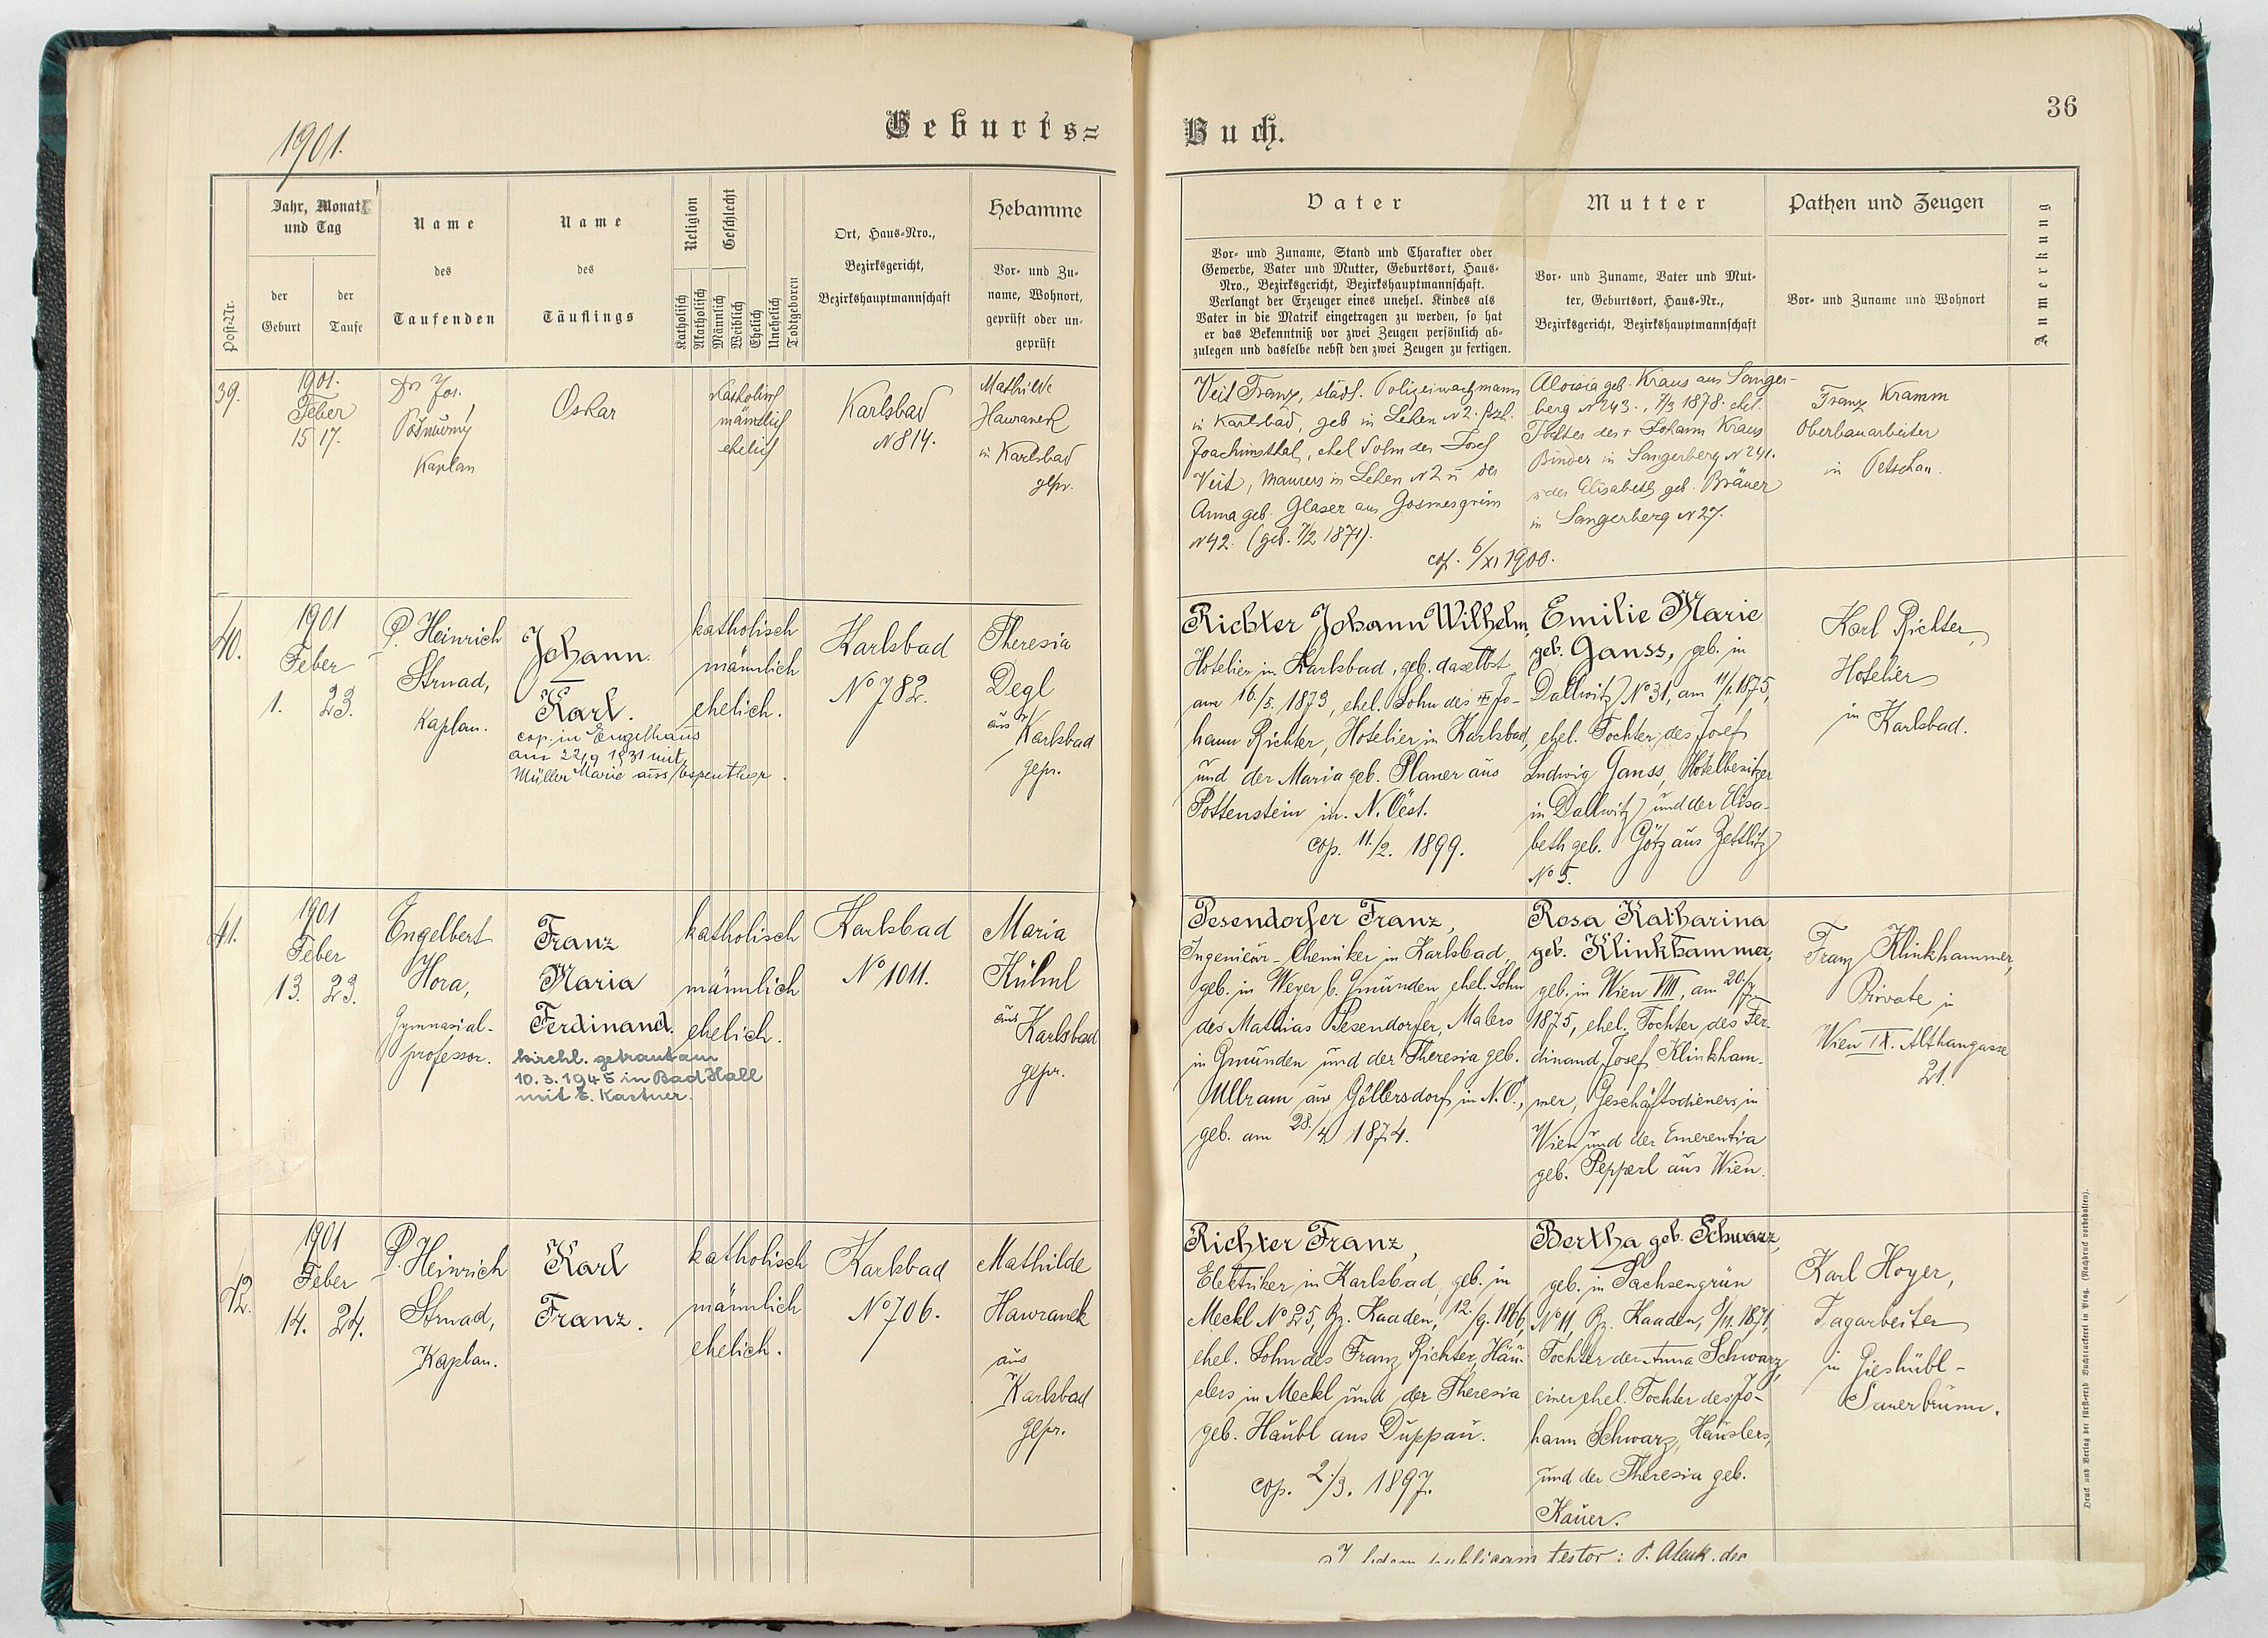 1901.
Geburts=
Buch.
36
Jahr, Monat
und Tag
Name
des
Taufenden
Name
des
Täuflings
Religion
Geschlecht
Ort, Haus-Nro.,
Bezirksgericht,
Bezirkshauptmannschaft
Hebamme
Vor- und Zu-
name, Wohnort,
geprüft oder un-
geprüft
Post-Nr.
der
Geburt
der
Taufe
Katholisch
Akatholisch
Männlich
Weiblich
Ehelich
Unehelich
Todtgeboren
Vater
Vor- und Zuname, Stand und Charakter oder
Gewerbe, Vater und Mutter, Geburtsort, Haus-
Nro., Bezirksgericht, Bezirkshauptmannschaft.
Verlangt der Erzeuger eines unehel. Kindes als
Vater in die Matrik eingetragen zu werden, so hat
er das Bekenntniß vor zwei Zeugen persönlich ab-
zulegen und dasselbe nebst den zwei Zeugen zu fertigen.
Mutter
Vor- und Zuname, Vater und Mut-
ter, Geburtsort, Haus-Nr.,
Bezirksgericht, Bezirkshauptmannschaft
Pathen und Zeugen
Vor- und Zuname und Wohnort
Anmerkung
39.
1901.
Feber
15 17.
Dr Jos.
Kaplan
Oskar
katholisch
männlich
ehelich
Karlsbad
N 814.
Mathilde
Hawranek
in Karlsbad
gepr.
Veit Franz, städt. Polizeiwachmann
in Karlsbad, geb in Lehen N 2. Bzl.
Joachimsthal, ehel Sohn des Josef
Veit, Maurers in Lehen N 2 u der
Anna geb. Glaser aus Gosmesgrün
N 42. (geb. 7/2 1871).
cop. 6/XI 1900.
Aloisia geb. Kraus aus Sanger-
berg N 243., 7/3 1878. ehel.
Tochter des + Johann Kraus
Binder in Sangerberg N 241.
u der Elisabeth geb. Bräuer
in Sangerberg N 27.
Franz Kramm
Oberbauarbeiter
in Petschau.
40.
1901
Feber
1. 23.
P. Heinrich
Strnad,
Kaplan.
Johann
Karl.
cop. in Engelhaus
am 22/9 1931 mit
Müller Marie aus Espenthor.
katholisch
männlich
ehelich.
Karlsbad
No 782.
Theresia
Degl
aus Karlsbad
gepr.
Richter Johann Wilhelm,
Hotelier in Karlsbad, geb. daselbst
am 16./5. 1873, ehel. Sohn des + Jo-
hann Richter, Hotelier in Karlsbad,
und der Maria geb. Planer aus
Pottenstein in N. Oest.
cop. 11./2. 1899.
Emilie Marie
geb. Ganss, geb. in
Dallwitz No 31, am 11/1. 1875,
ehel. Tochter des Josef
Ludwig Ganss, Hotelbesitzer
in Dallwitz und der Elisa-
beth geb. Götz aus Zettlitz
No 5.
Karl Richter,
Hotelier
in Karlsbad.
41.
1901
Feber
13. 23.
Engelbert
Hora,
Gymnasial-
professor.
Franz
Maria
Ferdinand.
kirchl. getraut am
10.3.1945 in Bad Hall
mit E. Kastner.
katholisch
männlich
ehelich.
Karlsbad
No 1011.
Maria
Kühnl
aus Karlsbad
gepr.
Pesendorfer Franz,
Ingenieur-Chemiker in Karlsbad,
geb. in Weyer b. Gmunden ehel. Sohn
des Mathias Pesendorfer, Malers
in Gmunden und der Theresia geb.
Ullram aus Göllersdorf in N. Ö.,
geb. am 28./4 1874.
Rosa Katharina
geb. Klinkhammer,
geb. in Wien VIII, am 20./7
1875, ehel. Tochter des Fer-
dinand Josef Klinkham-
mer, Geschäftsdieners in
Wien und der Emerentia
geb. Pepperl aus Wien.
Franz Klinkhammer,
Private in
Wien IX. Althangasse
21.
42.
1901
Feber
14. 24.
P. Heinrich
Strnad,
Kaplan.
Karl
Franz.
katholisch
männlich
ehelich.
Karlsbad
No 706.
Mathilde
Hawranek
aus
Karlsbad
gepr.
Richter Franz,
Elektriker in Karlsbad, geb. in
Meckl No 25, Bz. Kaaden, 12./9. 1866,
ehel. Sohn des Franz Richter, Häus-
lers in Meckl und der Theresia
geb. Haubl aus Duppau.
cop. 2./3. 1897.
Bertha geb. Schwarz,
geb. in Sachsengrün
No 11, Bz. Kaaden, 8/11. 1871,
Tochter der Anna Schwarz,
einer ehel. Tochter des Jo-
hann Schwarz, Häuslers,
und der Theresia geb.
Kauer.
Karl Hoyer,
Tagarbeiter
in Gieshübl-
Sauerbrunn.
testor: P.
Druck und Verlag der fürst-erzb Buchdruckerei in Prag. (Nachdruck vorbehalten).